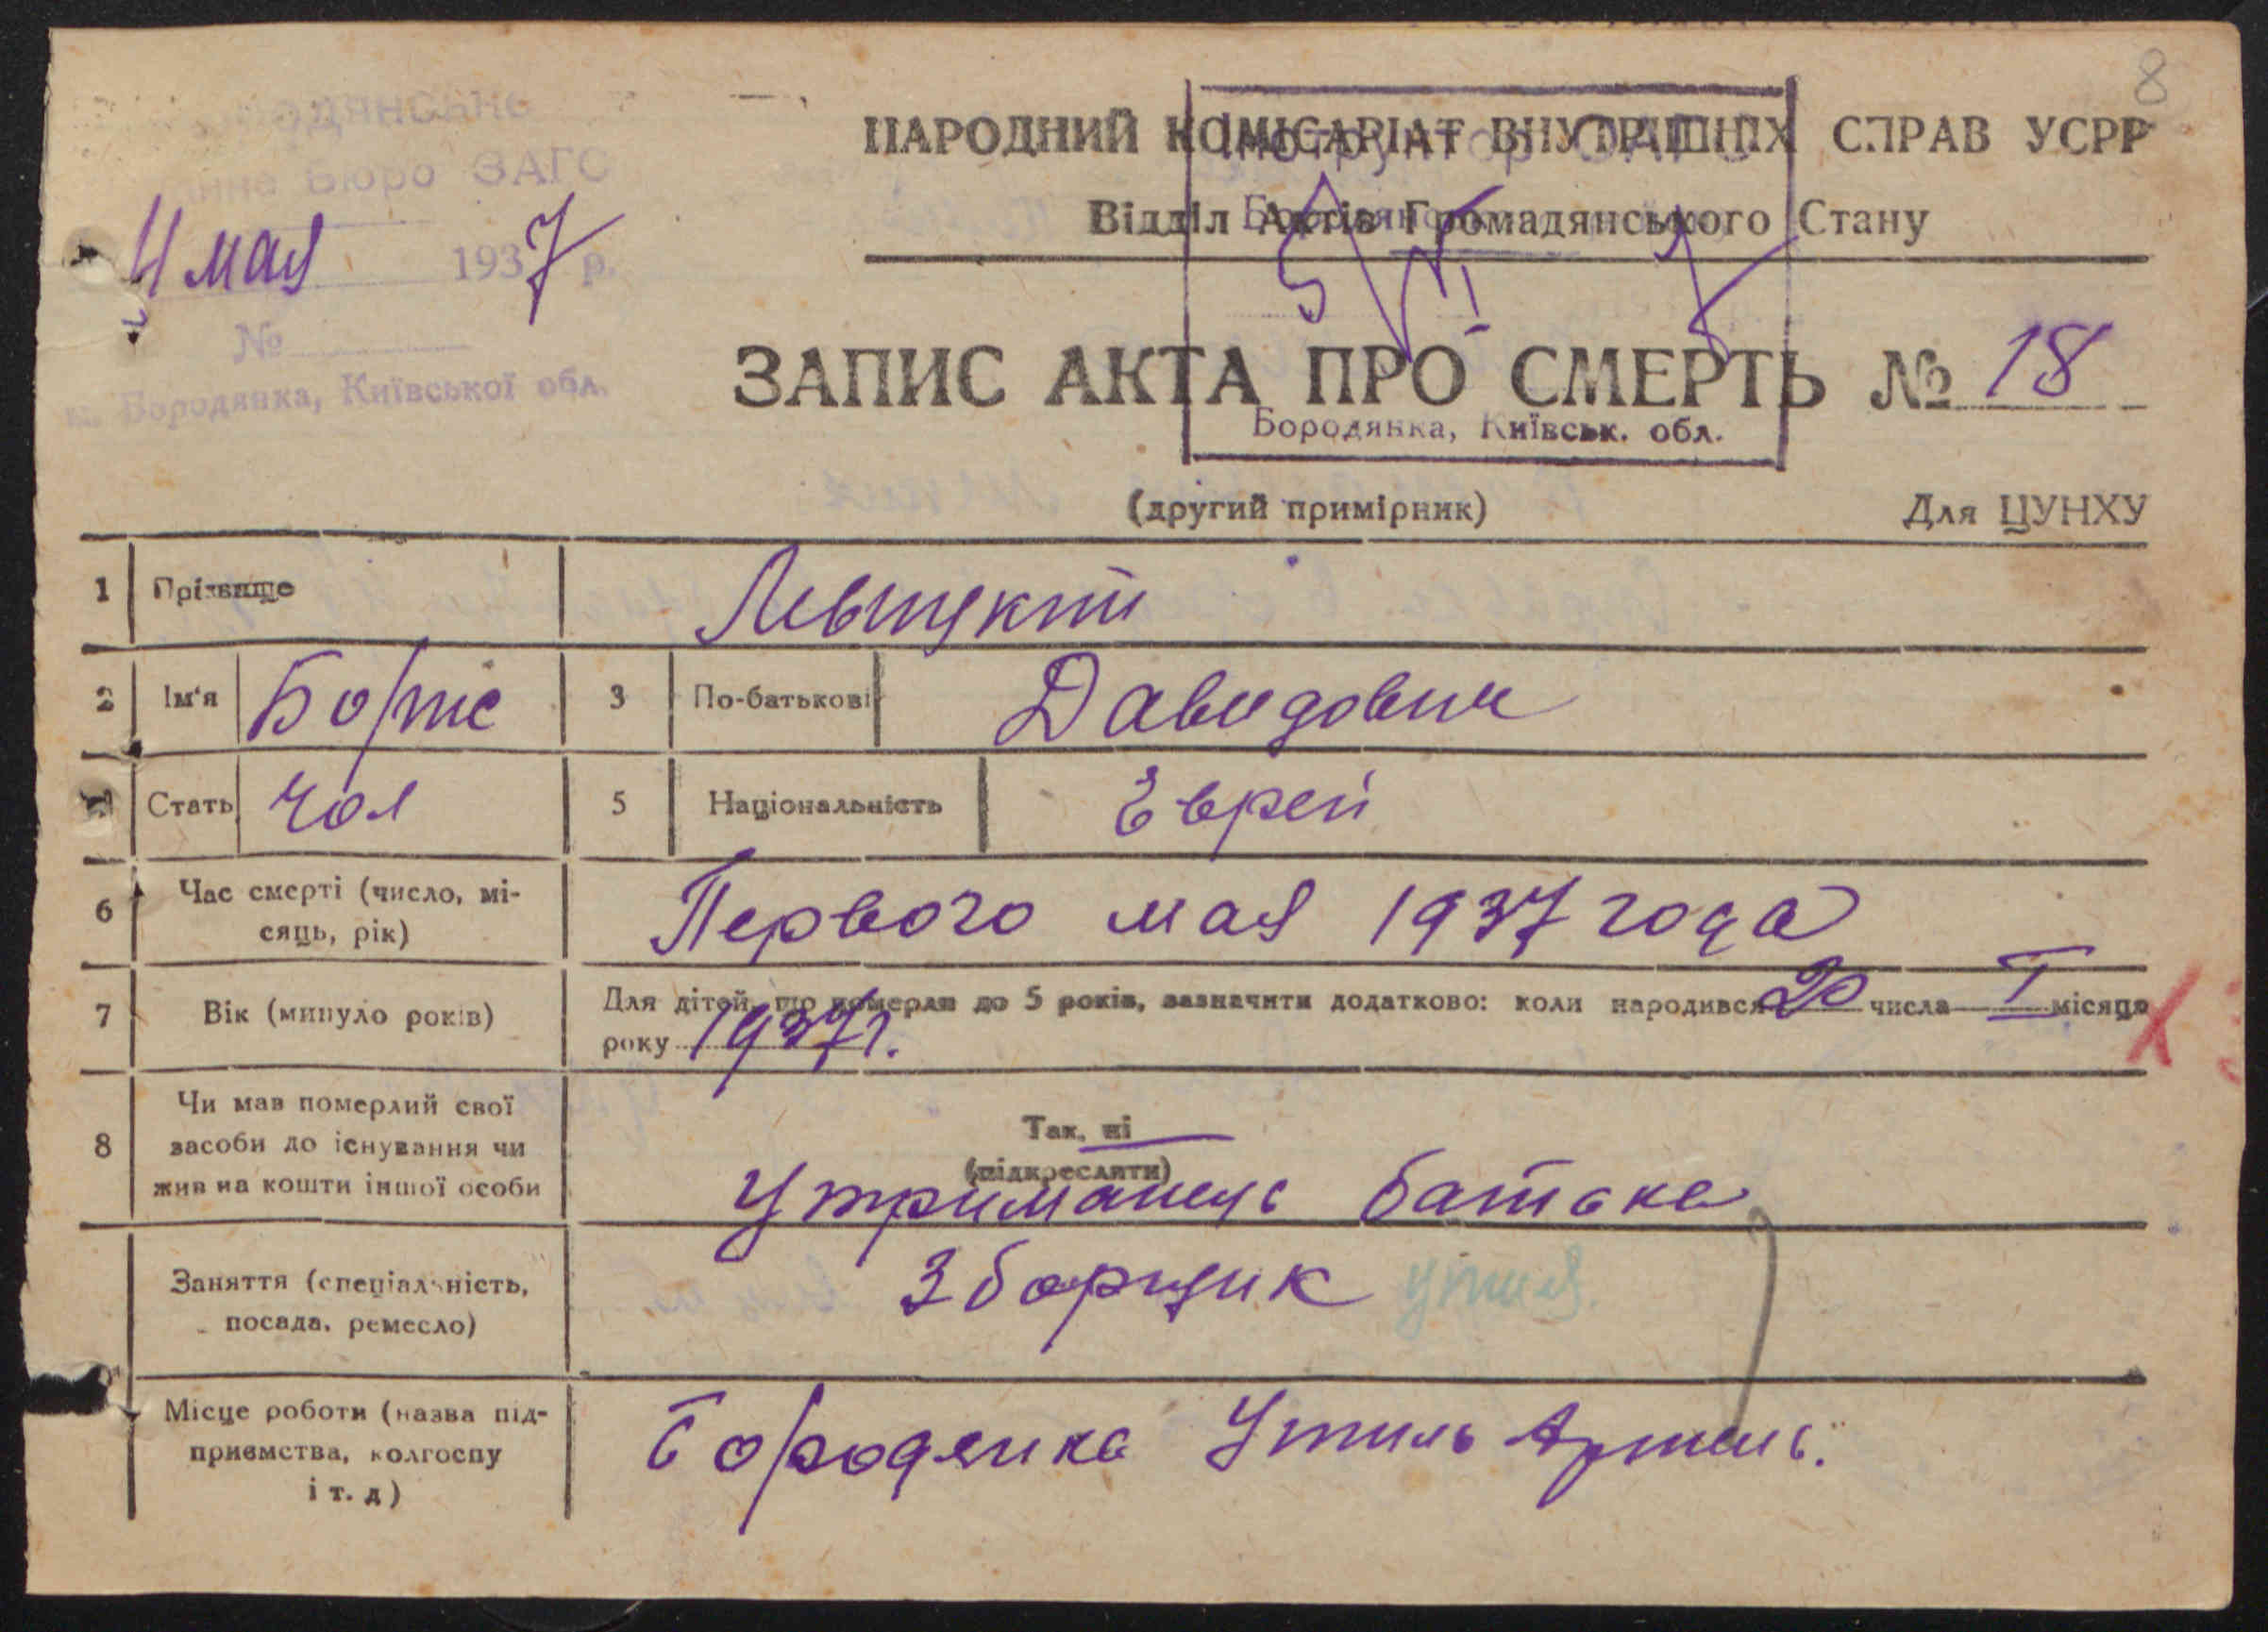 8
НАРОДНИЙ КОМІСАРІАТ ВНУТРІШНІХ СПРАВ УСРР
Бюро ЗАГС
Відділ Актів Громадянського Стану
4 мая 1937 р.
№
м. Бородянка, Київської обл.
ЗАПИС АКТА ПРО СМЕРТЬ № 18
Бородянка, Київськ. обл.
(другий примірник) Для ЦУНХУ
1 Прізвище Левицкий
2 Ім'я Борис 3 По-батькові Давидович
Стать чол 5 Національність Еврей
6 Час смерті (число, мі-
сяць, рік) Первого мая 1937 года
7 Вік (минуло років) Для дітей, що померли до 5 років, зазначити додатково: коли народився 20 числа I місяця
року 1937 г.
8 Чи мав померлий свої
засоби до існування чи
жив на кошти іншої особи
Так, ні
(підкреслити)
Утриманець батька
Заняття (спеціальність,
посада, ремесло) Зборщик утиля.
Місце роботи (назва під-
приємства, колгоспу
і т. д) Бородянка Утиль Артель.